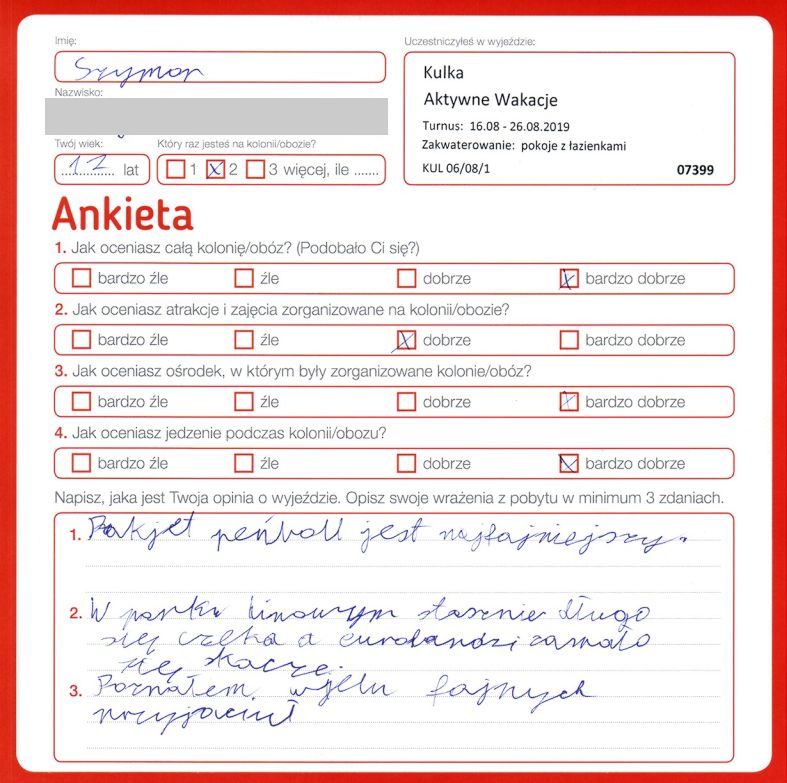 Imię:
Szymon
Nazwisko:
Twój wiek:
12 lat
Który raz jesteś na kolonii/obozie?
1 2 3 więcej, ile .......
Uczestniczyłeś w wyjeździe:
Kulka
Aktywne Wakacje
Turnus: 16.08 - 26.08.2019
Zakwaterowanie: pokoje z łazienkami
KUL 06/08/1 07399
Ankieta
1. Jak oceniasz całą kolonię/obóz? (Podobało Ci się?)
bardzo źle źle dobrze bardzo dobrze
2. Jak oceniasz atrakcje i zajęcia zorganizowane na kolonii/obozie?
bardzo źle źle dobrze bardzo dobrze
3. Jak oceniasz ośrodek, w którym były zorganizowane kolonie/obóz?
bardzo źle źle dobrze bardzo dobrze
4. Jak oceniasz jedzenie podczas kolonii/obozu?
bardzo źle źle dobrze bardzo dobrze
Napisz, jaka jest Twoja opinia o wyjeździe. Opisz swoje wrażenia z pobytu w minimum 3 zdaniach.
1. Pakjet peńboll jest najfajniejszy.
2. W parku linowym strasznie długo
się czeka a eurobandzi zamało
się skacze.
3. Poznałem wjelu fajnych
przyjaciuł